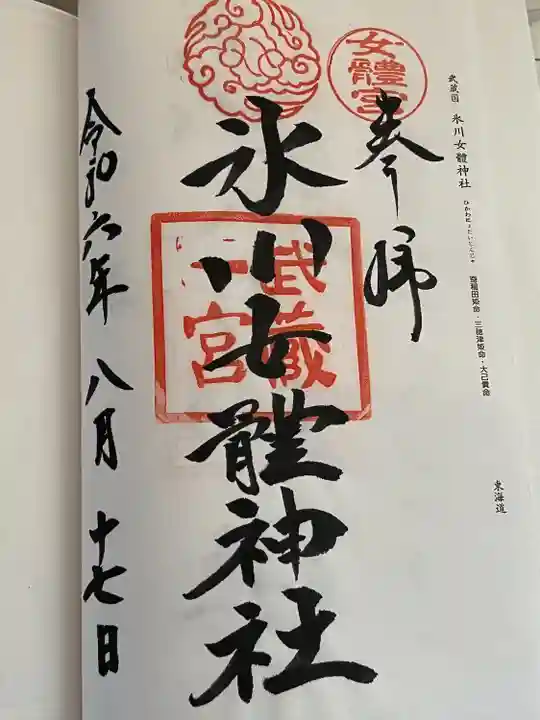 武蔵国 氷川女體神社 ひかわにょたいじんじゃ 奇稲田姫命・三穂津姫命・大己貴命
東海道
奉拝
女體宮
氷川女體神社
武蔵
一宮
令和六年八月十七日